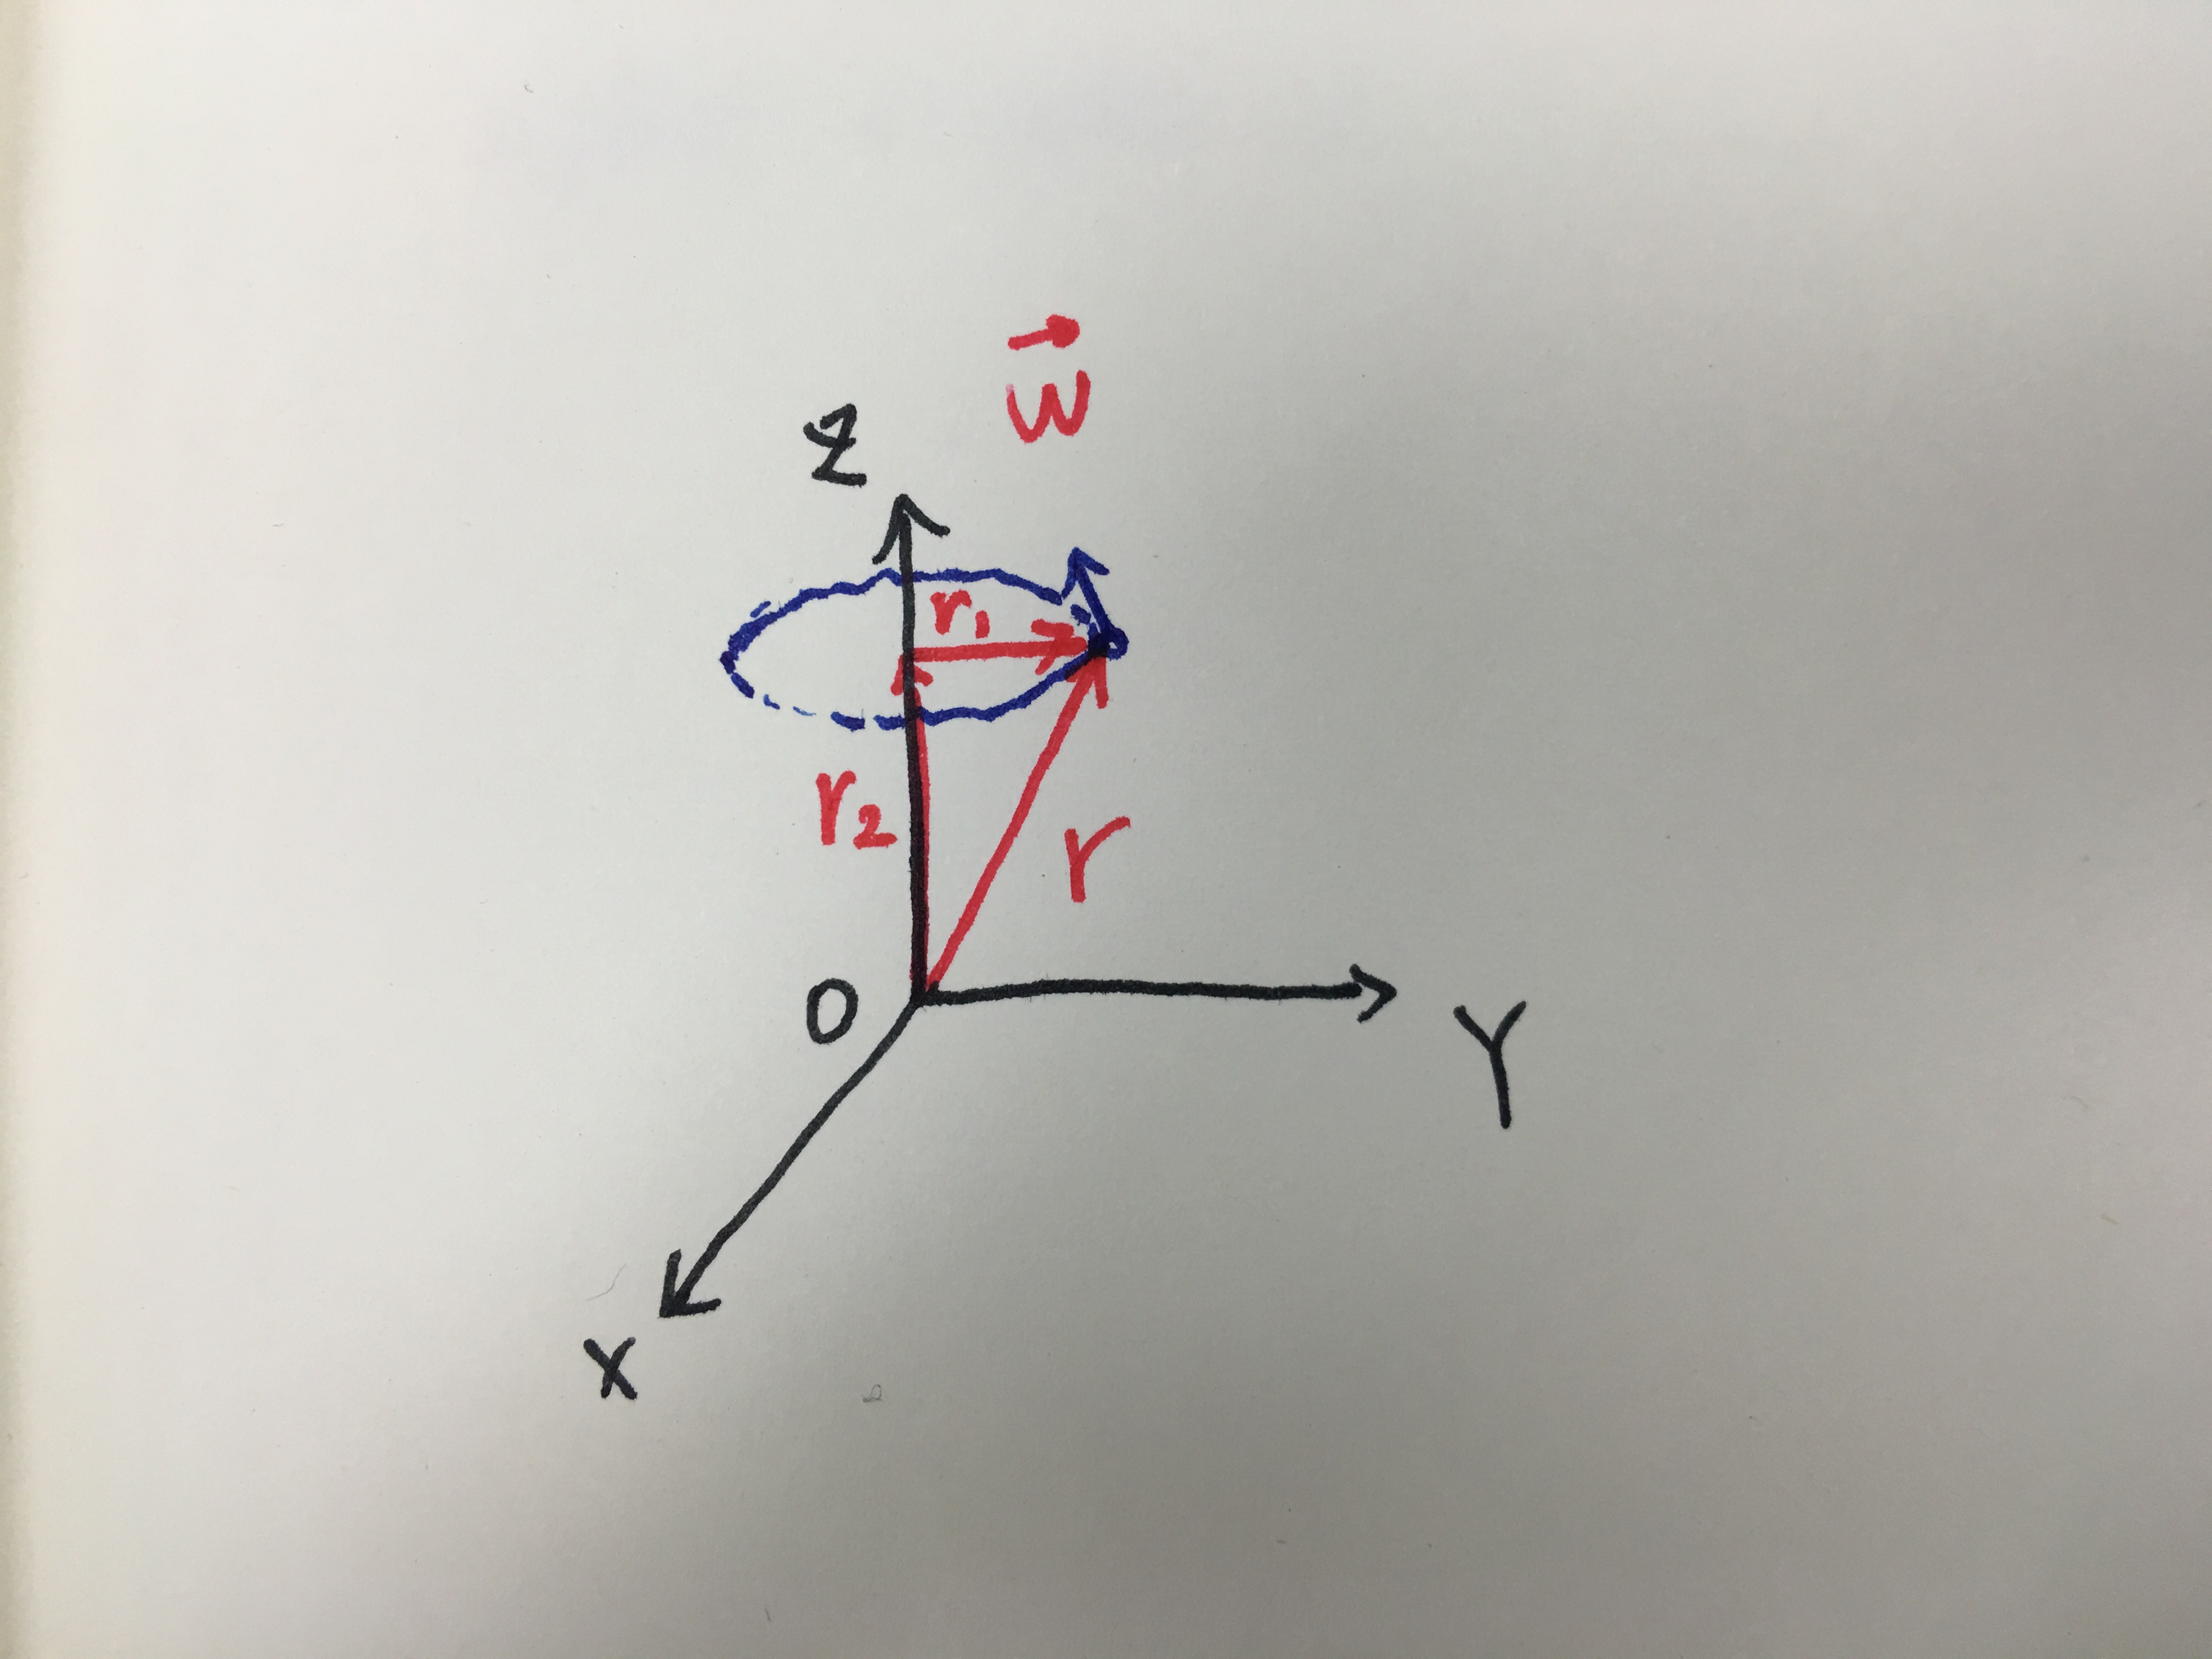 w⃗
Z
r₁
r₂
r
O
Y
X